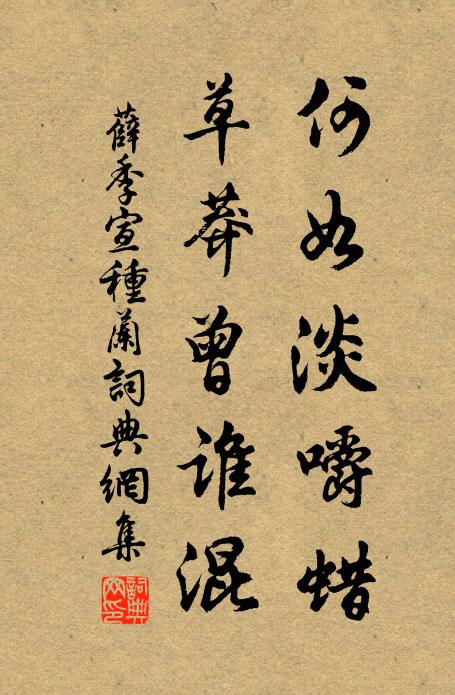 何如淡嚼蜡
草莽曾谁混
薛季宣種蘭詞典網集
詞典网印